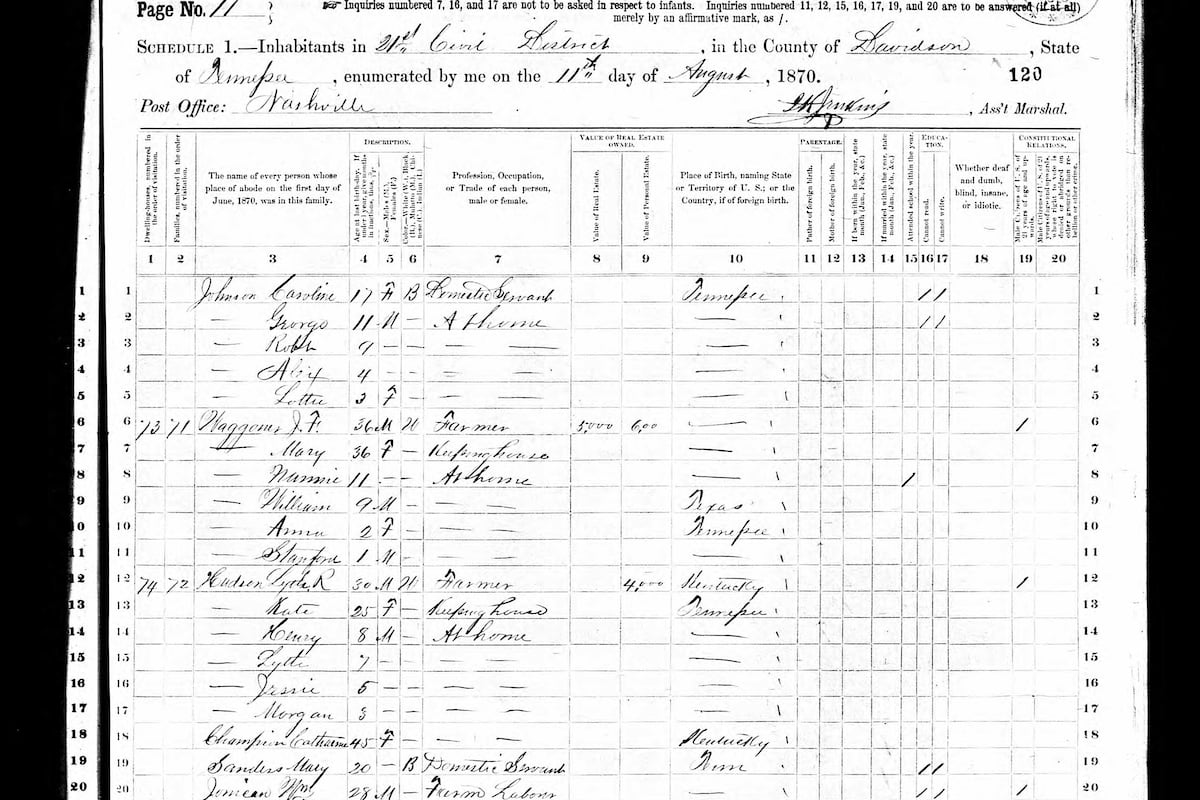 Page No. 11
☞ Inquiries numbered 7, 16, and 17 are not to be asked in respect to infants. Inquiries numbered 11, 12, 15, 16, 17, 19, and 20 are to be answered (if at all)
merely by an affirmative mark, as /.
Schedule 1.—Inhabitants in 21st Civil District, in the County of Davidson, State
of Tennessee, enumerated by me on the 11th day of August, 1870.
120
Post Office: Nashville
Jenkins, Ass't Marshal.
Description. Value of Real Estate owned. Parentage. Education. Constitutional Relations.
Dwelling-houses, numbered in the order of visitation. Families, numbered in the order of visitation. The name of every person whose place of abode on the first day of June, 1870, was in this family. Age at last birth-day. If under 1 year, give months in fractions, thus, Sex.—Males (M.), Females (F.) Color.—White (W.), Black (B.), Mulatto (M.), Chinese (C.), Indian (I.) Profession, Occupation, or Trade of each person, male or female. Value of Real Estate. Value of Personal Estate. Place of Birth, naming State or Territory of U. S.; or the Country, if of foreign birth. Father of foreign birth. Mother of foreign birth. If born within the year, state month (Jan., Feb., &c.) If married within the year, state month (Jan., Feb., &c.) Attended school within the year. Cannot read. Cannot write. Whether deaf and dumb, blind, insane, or idiotic. Male Citizens of U. S. of 21 years of age and upwards. Male Citizens of U. S. of 21 years of age and upwards, whose right to vote is denied or abridged on other grounds than rebellion or other crime.
1 2 3 4 5 6 7 8 9 10 11 12 13 14 15 16 17 18 19 20
1 1 Johnson Caroline 17 F B Domestic Servant Tennessee / / 1
2 2 — George 11 M — At home — / / 2
3 3 — Robt 9 — — — — — 3
4 4 — Alix 4 — — — — — 4
5 5 — Lottie 3 F — — — 5
6 6 73 71 Waggoner J. F. 36 M W Farmer 5,000 600 — / 6
7 7 — Mary 36 F — Keeping house — 7
8 8 — Nannie 11 — — At home — / 8
9 9 — William 9 M — — — Texas 9
10 10 — Anna 2 F — — — Tennessee 10
11 11 — Stanford 1 M — — — — 11
12 12 74 72 Hudson Lytle R 30 M W Farmer 4,000 Kentucky / 12
13 13 — Kate 25 F — Keeping house Tennessee 13
14 14 — Henry 8 M — At home — 14
15 15 — Lytle 7 — — — — — 15
16 16 — Jessie 5 — — — — — 16
17 17 — Morgan 3 — — — — — 17
18 18 Champion Catharine 45 F — — — Kentucky 18
19 19 Sanders Mary 20 — B Domestic Servant Tenn / / 19
20 20 Wm 28 M — Farm Labour — / / / 20